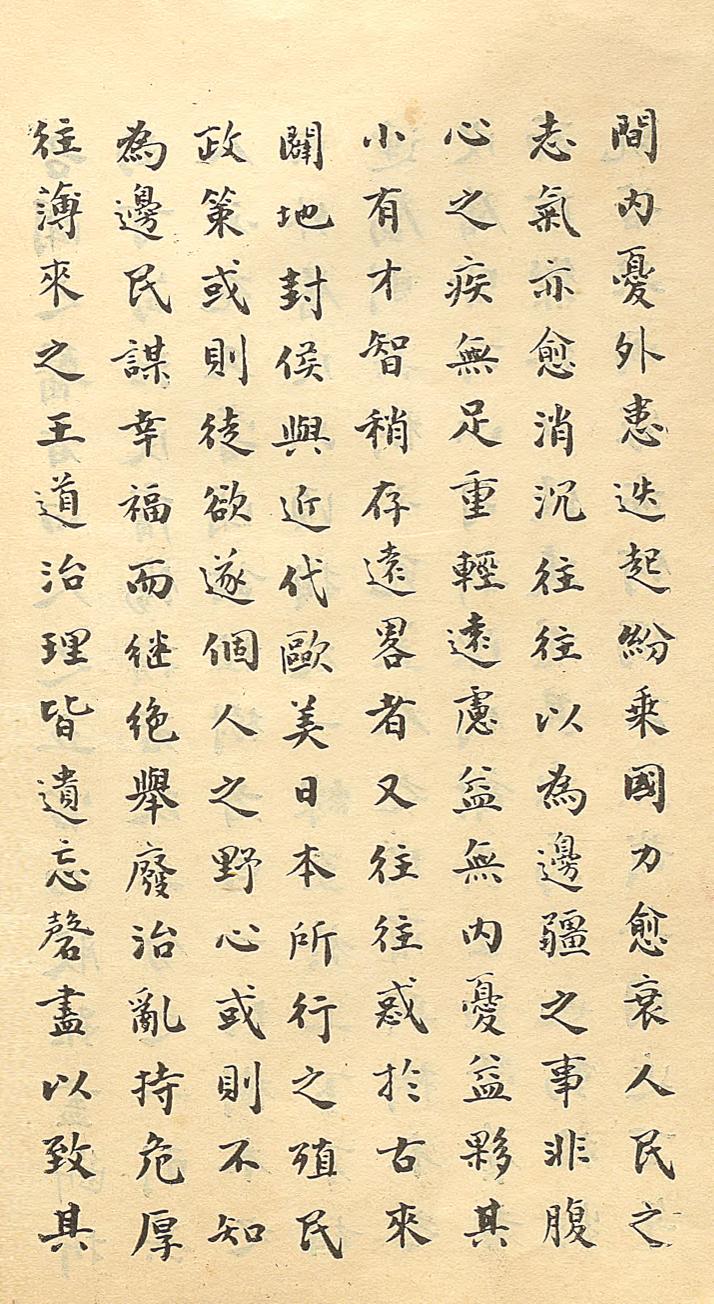 間內憂外患迭起紛乘國力愈衰人民之
志氣亦愈消沉往往以為邊疆之事非腹
心之疾無足重輕遠慮益無內憂益夥其
小有才智稍存遠畧者又往往惑於古來
闢地封侯與近代歐美日本所行之殖民
政策或則徒欲遂個人之野心或則不知
為邊民謀幸福而继绝舉廢治亂持危厚
往薄來之王道治理皆遺忘罄盡以致其